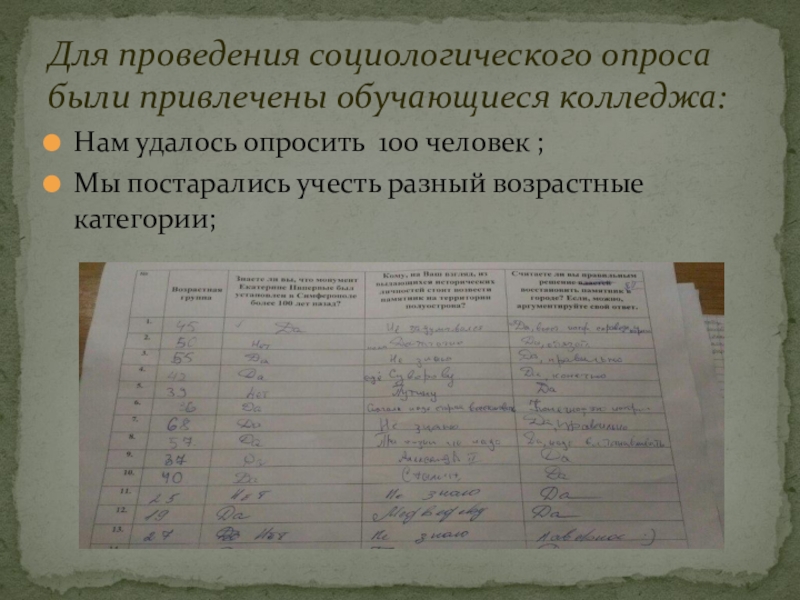 Для проведения социологического опроса
были привлечены обучающиеся колледжа:
Нам удалось опросить 100 человек ;
Мы постарались учесть разный возрастные
категории;
Возрастная группа
Знаете ли вы, что монумент Екатерине Впервые был установлен в Симферополе более 100 лет назад?
Кому, на Ваш взгляд, из выдающихся исторических личностей стоит возвести памятник на территории полуострова?
Считаете ли вы правильным решение властей восстановить памятник в городе? Если, можно, аргументируйте свой ответ.
1. 45 Да Не задумывался Да,
2. Нет Достаточно Да,
3. 55 Да Не знаю Да, правильно
4. Да ещё Суворову Да, конечно
5. 39 Нет Путину Да
6. Да
7. 68 Да Не знаю Да, правильно
8. 57 Да Да, надо
9. 37 Александр II Да
10. 40 Да Сталин Да
11. 25 Нет Не знаю Да
12. 19 Да Медведев Да
13. 27 Нет Не знаю наверное :)